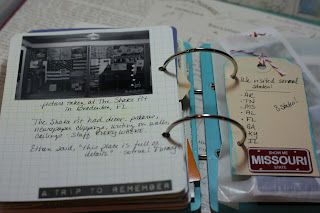 picture taken at The Shake Pit
in Bradenton, FL
The Shake Pit had decor. pictures,
newspaper clippings, writing on walls,
ceilings. Stuff EVERYWHERE.
Ethan said, "This place is full of
details"
A TRIP TO REMEMBER
We visited several
states!
- AR
- TN
- MS
- AL
- FL
- GA
- KY
- IL
SHOW ME
MISSOURI
STATE